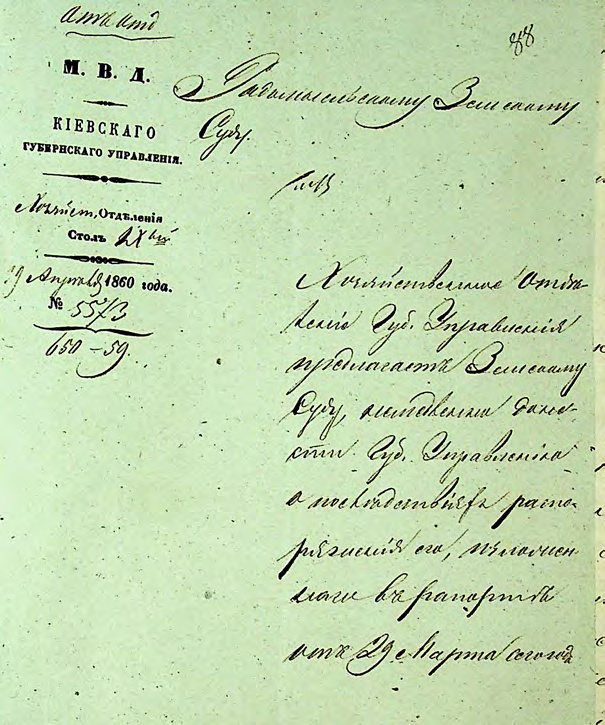 88
М. В. Д.
КІЕВСКАГО
ГУБЕРНСКАГО УПРАВЛЕНІЯ.
Хозяйст. Отдѣленія
Столъ IХый
19 Апрѣля 1860 года.
№ 5573
650-59.
Радомысльскому Земскому
Суду.
Хозяйственное Отдѣ-
леніе Губ. Управленія
предлагаетъ Земскому
Суду, немедленно доне-
сти Губ. Управленію
о послѣдствіяхъ распо-
ряженія его, изъяснен-
наго въ рапортѣ
отъ 29 Марта сего года